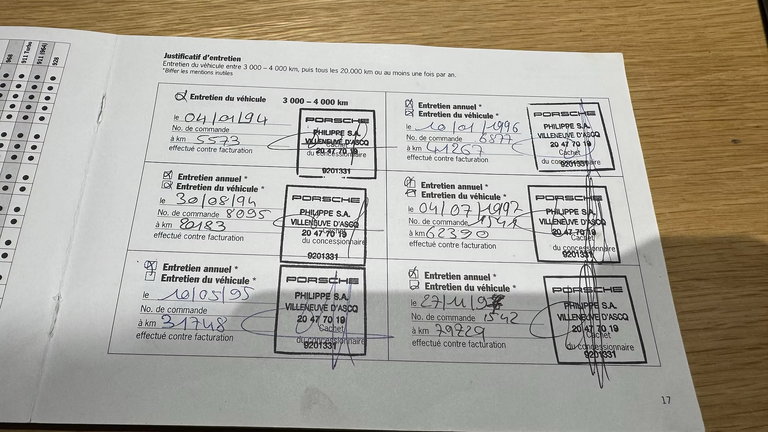 968
911 Turbo
911 (964)
928
Justificatif d'entretien
Entretien du véhicule entre 3 000 – 4 000 km, puis tous les 20.000 km ou au moins une fois par an.
*Biffer les mentions inutiles
Entretien du véhicule 3 000 – 4 000 km
le 04/01/94
No. de commande
à km 5573
effectué contre facturation
PORSCHE
PHILIPPE S.A.
VILLENEUVE D'ASCQ
20 47 70 19
9201331
Entretien annuel *
Entretien du véhicule *
le 30/08/94
No. de commande 8095
à km 20183
effectué contre facturation
PORSCHE
PHILIPPE S.A.
VILLENEUVE D'ASCQ
20 47 70 19
Cachet
du concessionnaire
9201331
Entretien annuel *
Entretien du véhicule *
le 10/05/95
No. de commande
à km 31748
effectué contre facturation
PORSCHE
PHILIPPE S.A.
VILLENEUVE D'ASCQ
20 47 70 19
Cachet
du concessionnaire
9201331
Entretien annuel *
Entretien du véhicule *
le 10/01/1996
No. de commande 6877
à km 41267
effectué contre facturation
PORSCHE
PHILIPPE S.A.
VILLENEUVE D'ASCQ
20 47 70 19
Cachet
du concessionnaire
9201331
Entretien annuel *
Entretien du véhicule *
le 04/07/1997
No. de commande
à km 62390
effectué contre facturation
PORSCHE
PHILIPPE S.A.
VILLENEUVE D'ASCQ
20 47 70 19
Cachet
du concessionnaire
9201331
Entretien annuel *
Entretien du véhicule *
le 27/11/98
No. de commande 1542
à km 79229
effectué contre facturation
PORSCHE
PHILIPPE S.A.
VILLENEUVE D'ASCQ
20 47 70 19
Cachet
du concessionnaire
9201331
17